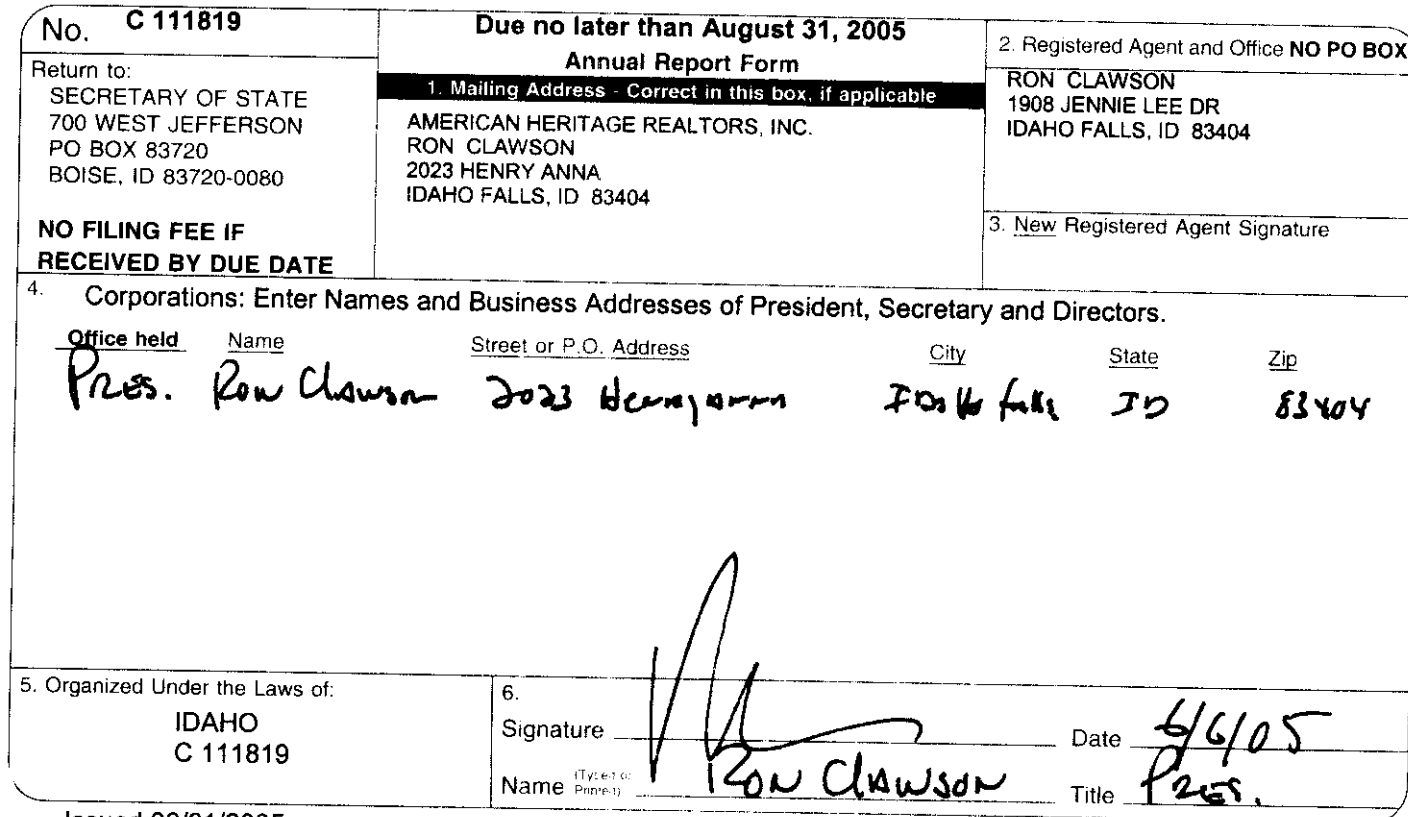 No. C 111819
Return to:
SECRETARY OF STATE
700 WEST JEFFERSON
PO BOX 83720
BOISE, ID 83720-0080
NO FILING FEE IF
RECEIVED BY DUE DATE
Due no later than August 31, 2005
Annual Report Form
1. Mailing Address - Correct in this box, if applicable
AMERICAN HERITAGE REALTORS, INC.
RON CLAWSON
2023 HENRY ANNA
IDAHO FALLS, ID 83404
2. Registered Agent and Office NO PO BOX
RON CLAWSON
1908 JENNIE LEE DR
IDAHO FALLS, ID 83404
3. New Registered Agent Signature
4. Corporations: Enter Names and Business Addresses of President, Secretary and Directors.
Office held Name Street or P.O. Address City State Zip
PRES. Ron Clawson 2023 Henryanna Idaho falls ID 83404
5. Organized Under the Laws of:
IDAHO
C 111819
6.
Signature Date 6/6/05
Name (Typed or Printed) RON CLAWSON Title PRES.